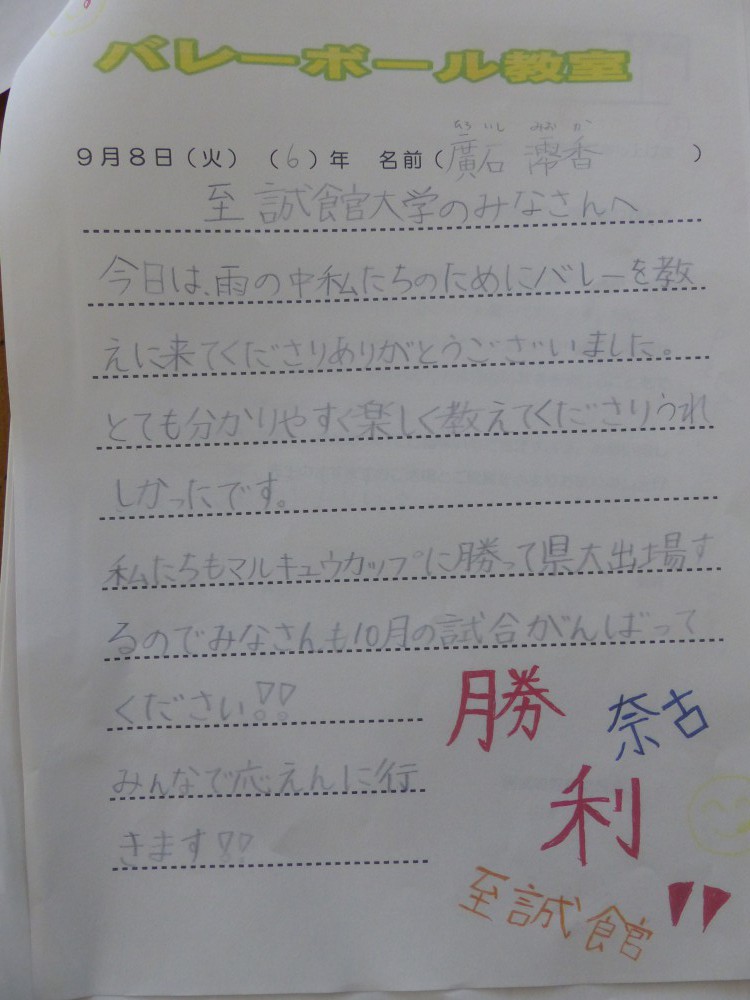 バレーボール教室
9月8日(火) (6)年 名前(廣石 澪香)
ひろ いし みお か
至誠館大学のみなさんへ
今日は、雨の中私たちのためにバレーを教
えに来てくださりありがとうございました。
とても分かりやすく楽しく教えてくださりうれ
しかったです。
私たちもマルキュウカップに勝って県大出場す
るのでみなさんも10月の試合がんばって
ください!!
みんなで応えんに行
きます!!
勝
奈古
利
至誠館
!!